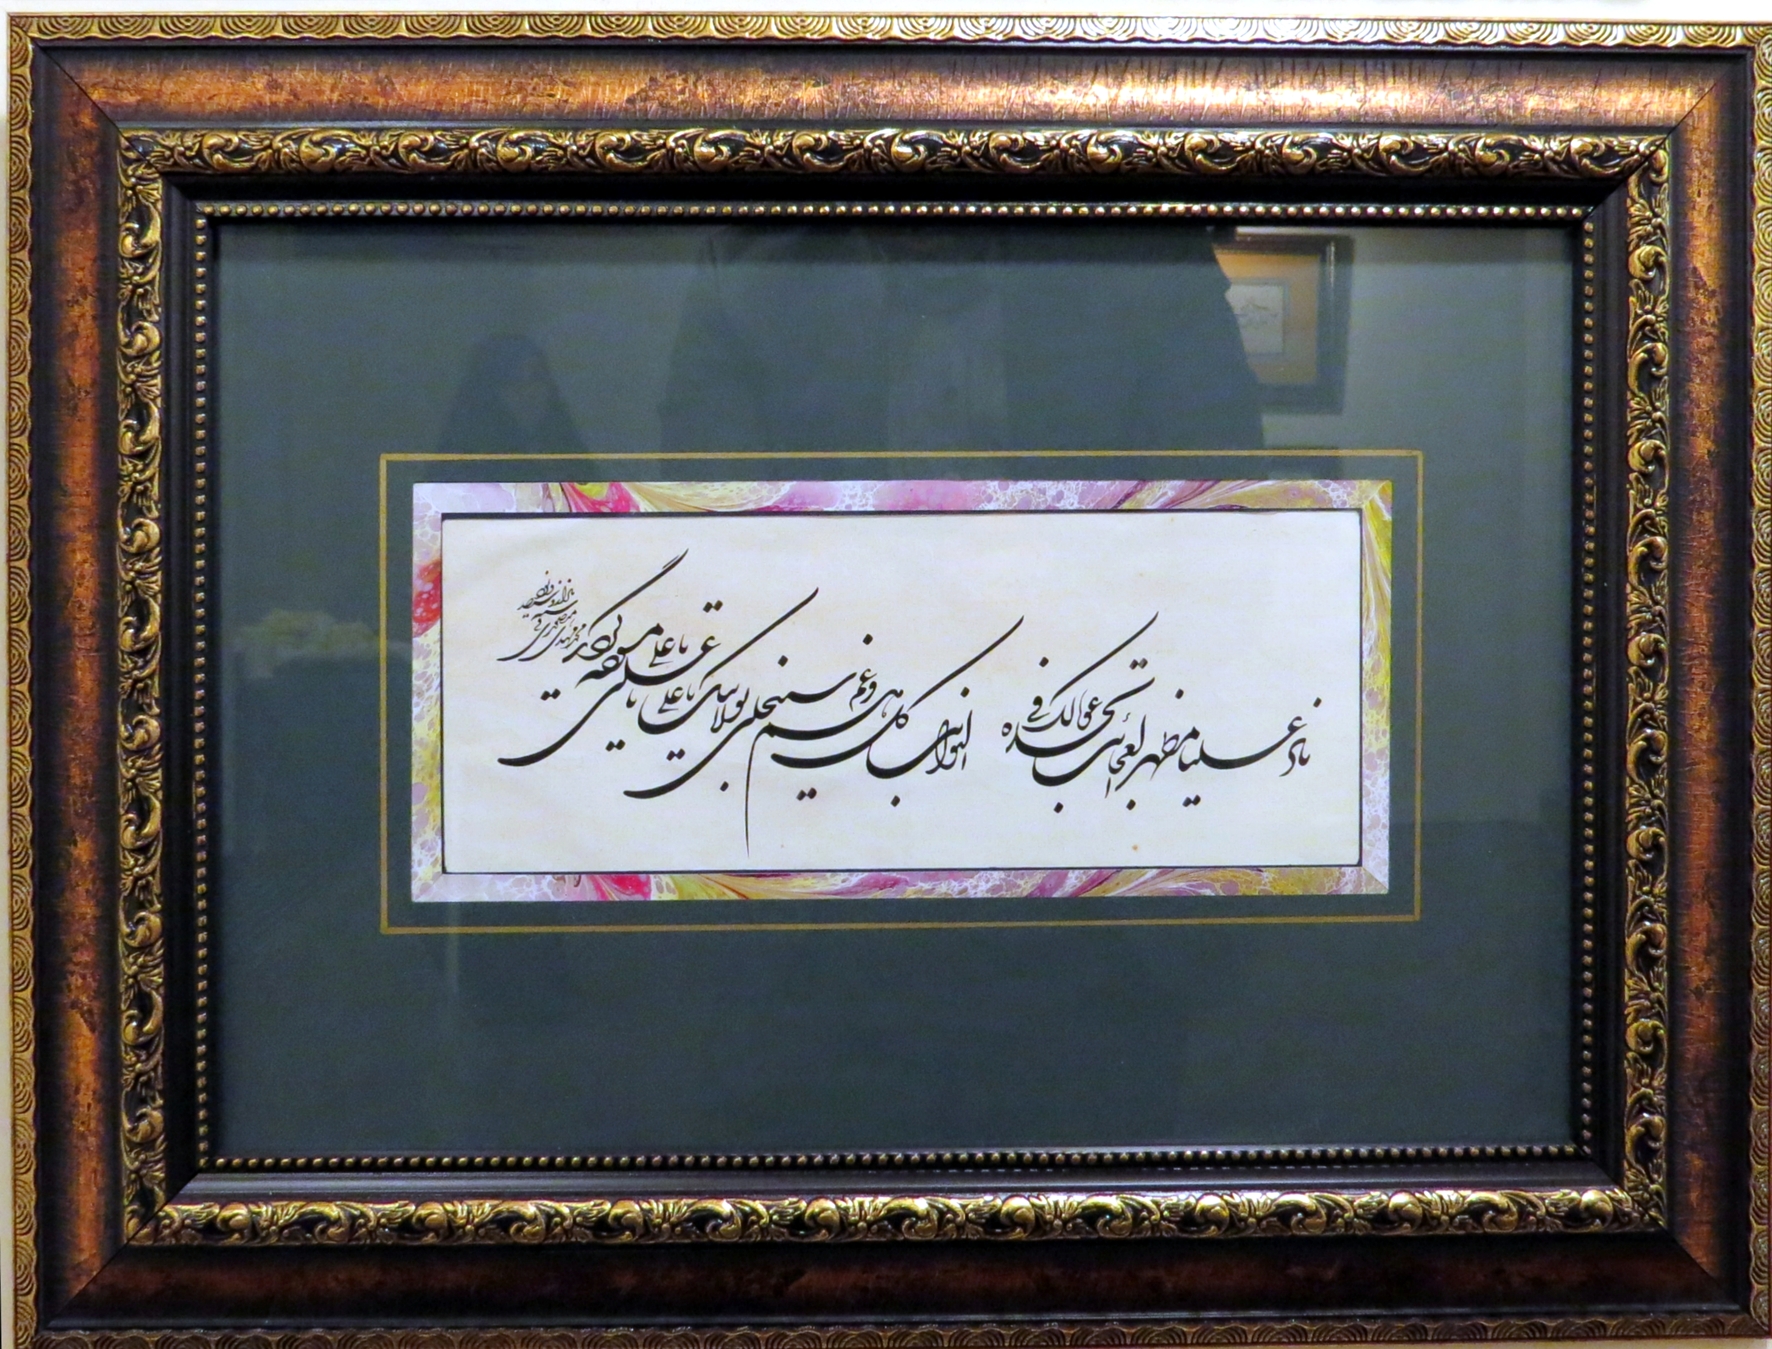 ناد علیا مظهر العجائب تجده عونا لک فی
النوائب کل هم و غم سینجلی بولایتک یا علی یا علی یا علی
محمدمهدی